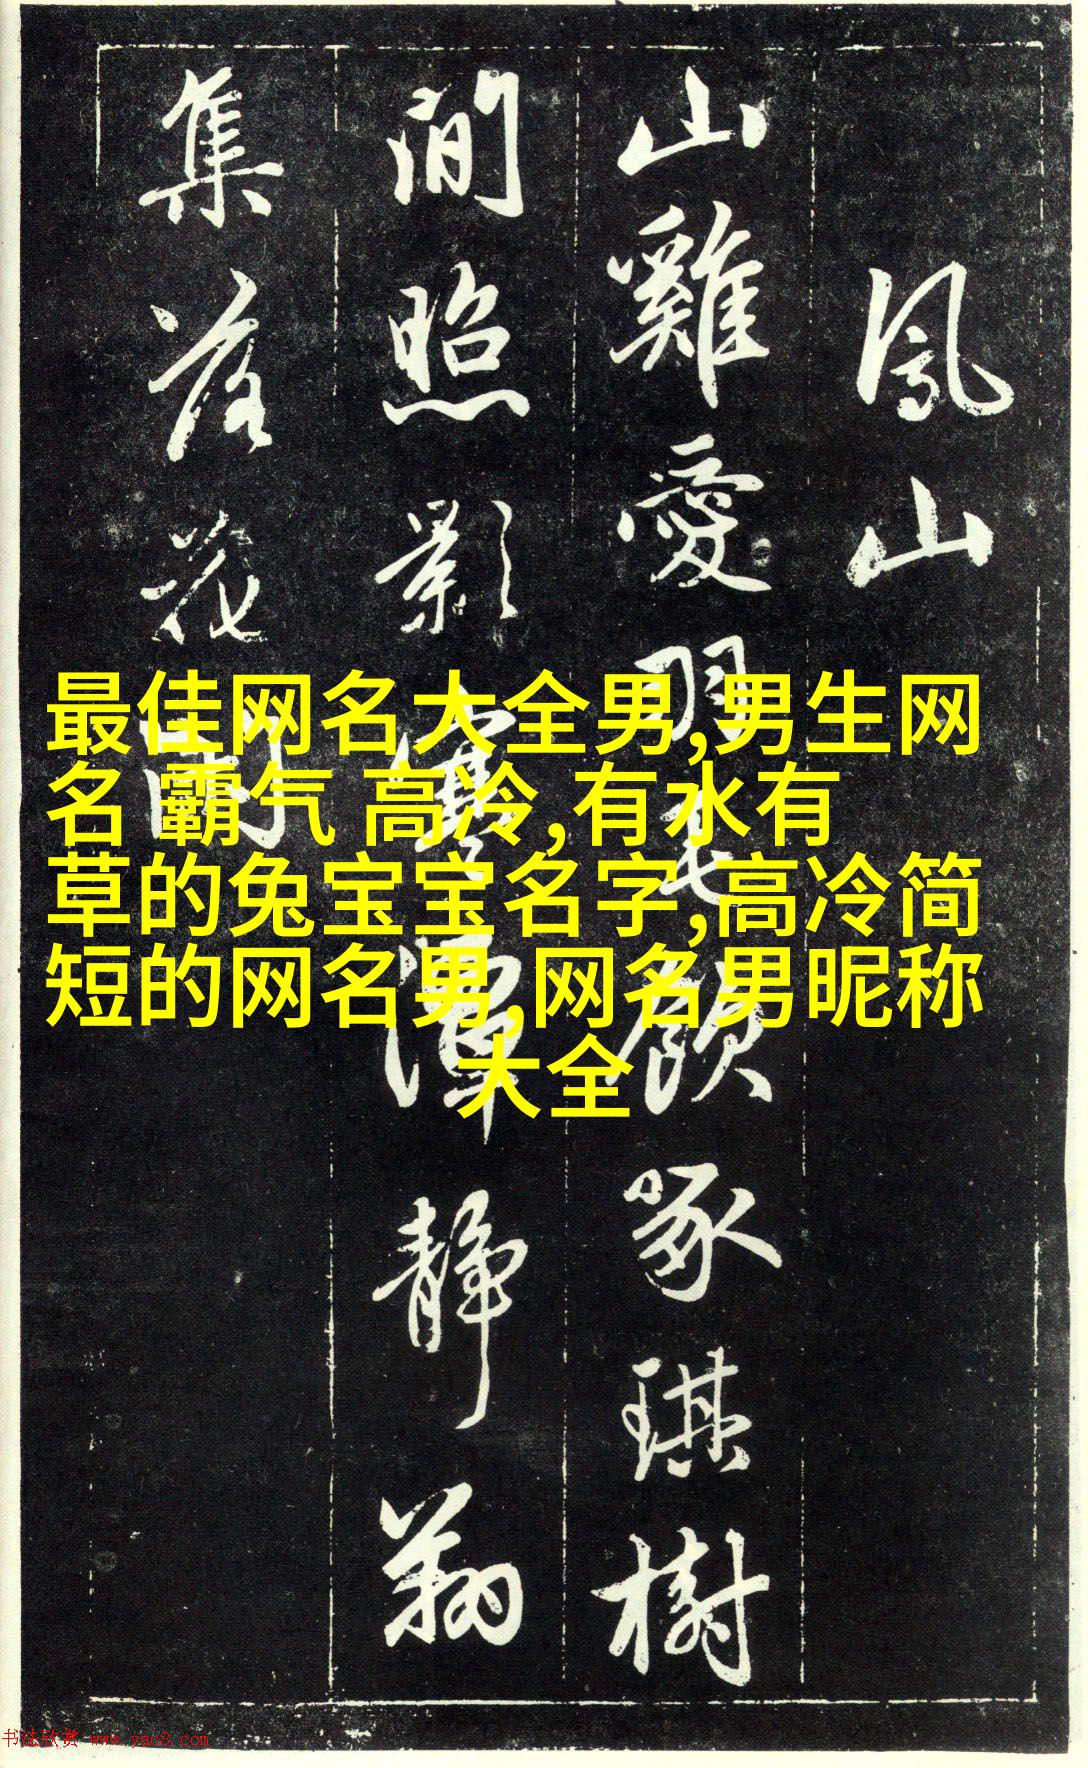 鳳山
山雞愛羽毛飲啄琪樹
間照影寒潭静翔
集落花
最佳网名大全男,男生网
名 霸气 高冷,有水有
草的兔宝宝名字,高冷简
短的网名男,网名男昵称
大全
书法欣赏 www.yac8.com